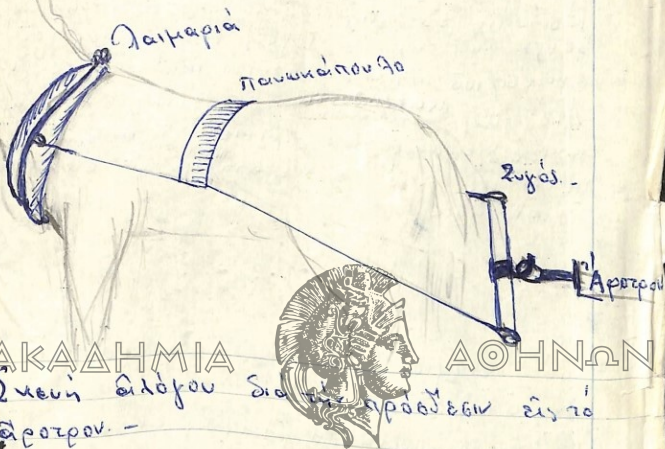 Λαιμαριά
πανωκάπουλο
Ζυγός. -
Ἄροτρον
ΑΚΑΔΗΜΙΑ ΑΘΗΝΩΝ
Σκευὴ ἀλόγου διὰ τὴν πρόσδεσιν εἰς τὸ
ἄροτρον. -